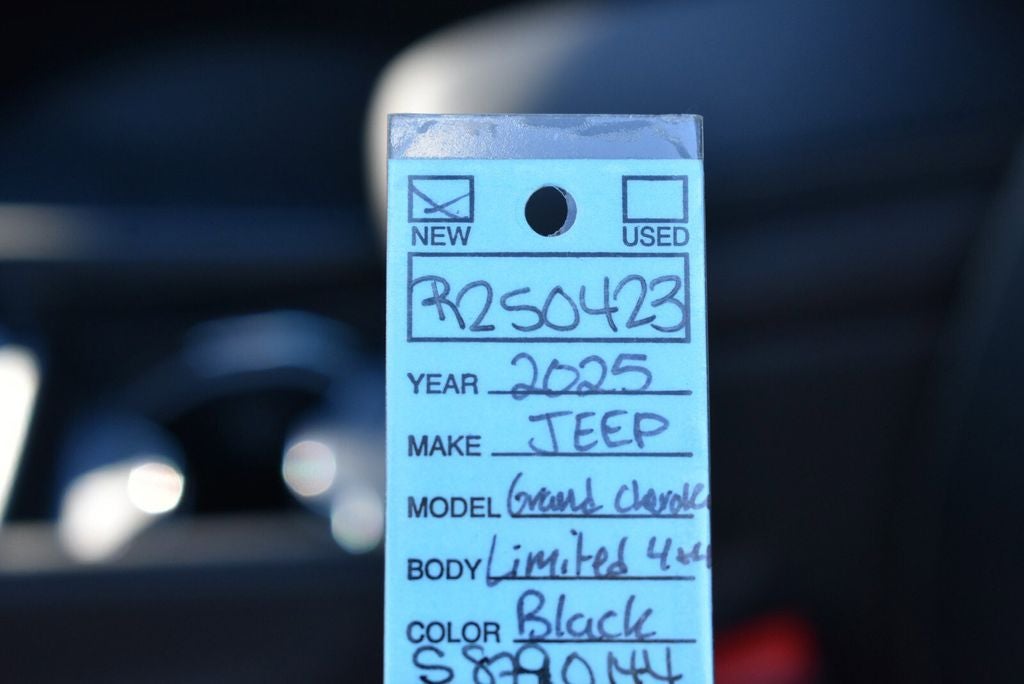 NEW USED
R250423
YEAR 2025
MAKE JEEP
MODEL Grand Cherokee
BODY Limited 4x4
COLOR Black